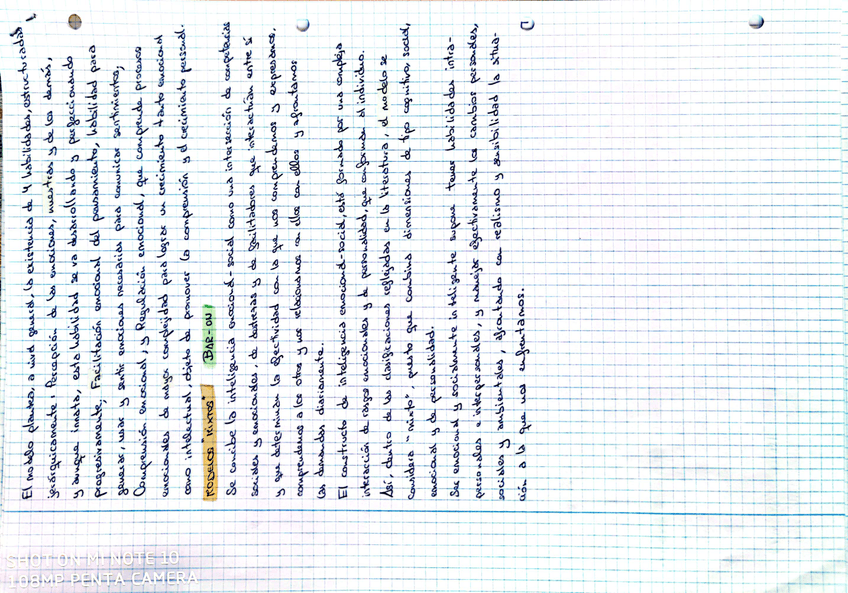 El modelo plantea, a nivel general, la existencia de 4 habilidades, estructuradas
jerárquicamente: Percepción de las emociones, nuestras y de los demás,
y aunque innata, esta habilidad se va desarrollando y perfeccionando
progresivamente; Facilitación emocional del pensamiento, habilidad para
generar, usar y sentir emociones necesarias para comunicar sentimientos;
Comprensión emocional, y Regulación emocional, que comprende procesos
emocionales de mayor complejidad para lograr un crecimiento tanto emocional
como intelectual, objeto de promover la comprensión y el crecimiento personal.
MODELOS "MIXTOS" BAR-ON
Se concibe la inteligencia emocional-social como una intersección de competencias
sociales y emocionales, de destrezas y de facilitadores que interactúan entre sí
y que determinan la efectividad con la que nos comprendemos y expresamos,
comprendemos a los otros y nos relacionamos con ellos y afrontamos
las demandas diariamente.
El constructo de inteligencia emocional-social, está formado por una compleja
interacción de rasgos emocionales y de personalidad, que conforman al individuo.
Así, dentro de las clasificaciones reflejadas en la literatura, el modelo se
considera "mixto", puesto que combina dimensiones de tipo cognitivo, social,
emocional y de personalidad.
Ser emocional y socialmente inteligente supone tener habilidades intra-
personales e interpersonales, y manejar efectivamente los cambios personales,
sociales y ambientales, afrontando con realismo y sensibilidad la situa-
ción a la que nos enfrentamos.
SHOT ON MI NOTE 10
108MP PENTA CAMERA